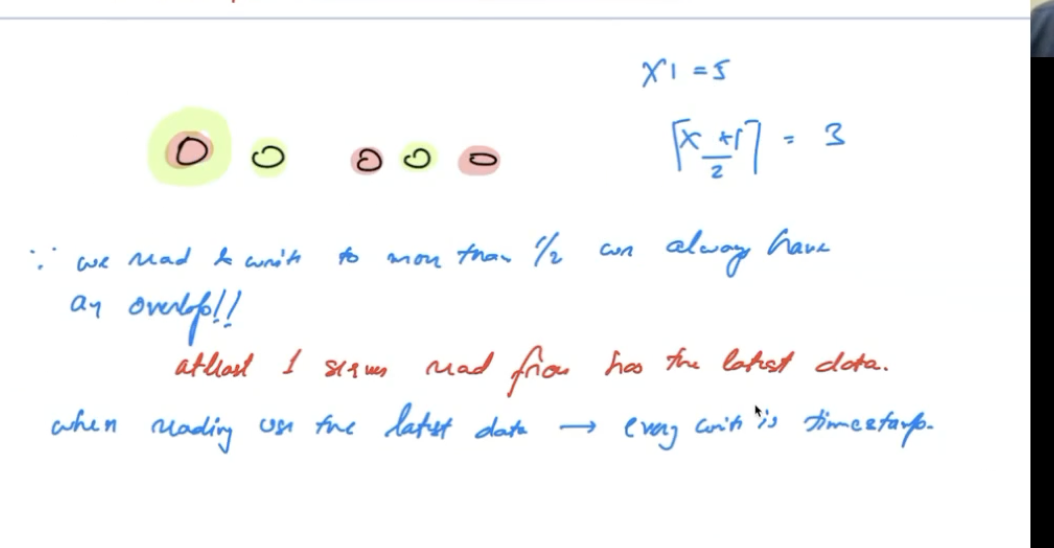 X1 = 5
⌈x+1/2⌉ = 3
∵ we read & write to more than 1/2 we always have
an overlap!!
atleast 1 server read from has the latest data.
when reading use the latest data → every write is timestamp.